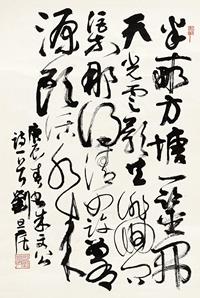 半畝方塘一鑒開
天光雲影共徘徊問
渠那得清如許為有
源頭活水來
春書朱文公
詩一首 劉旦宅